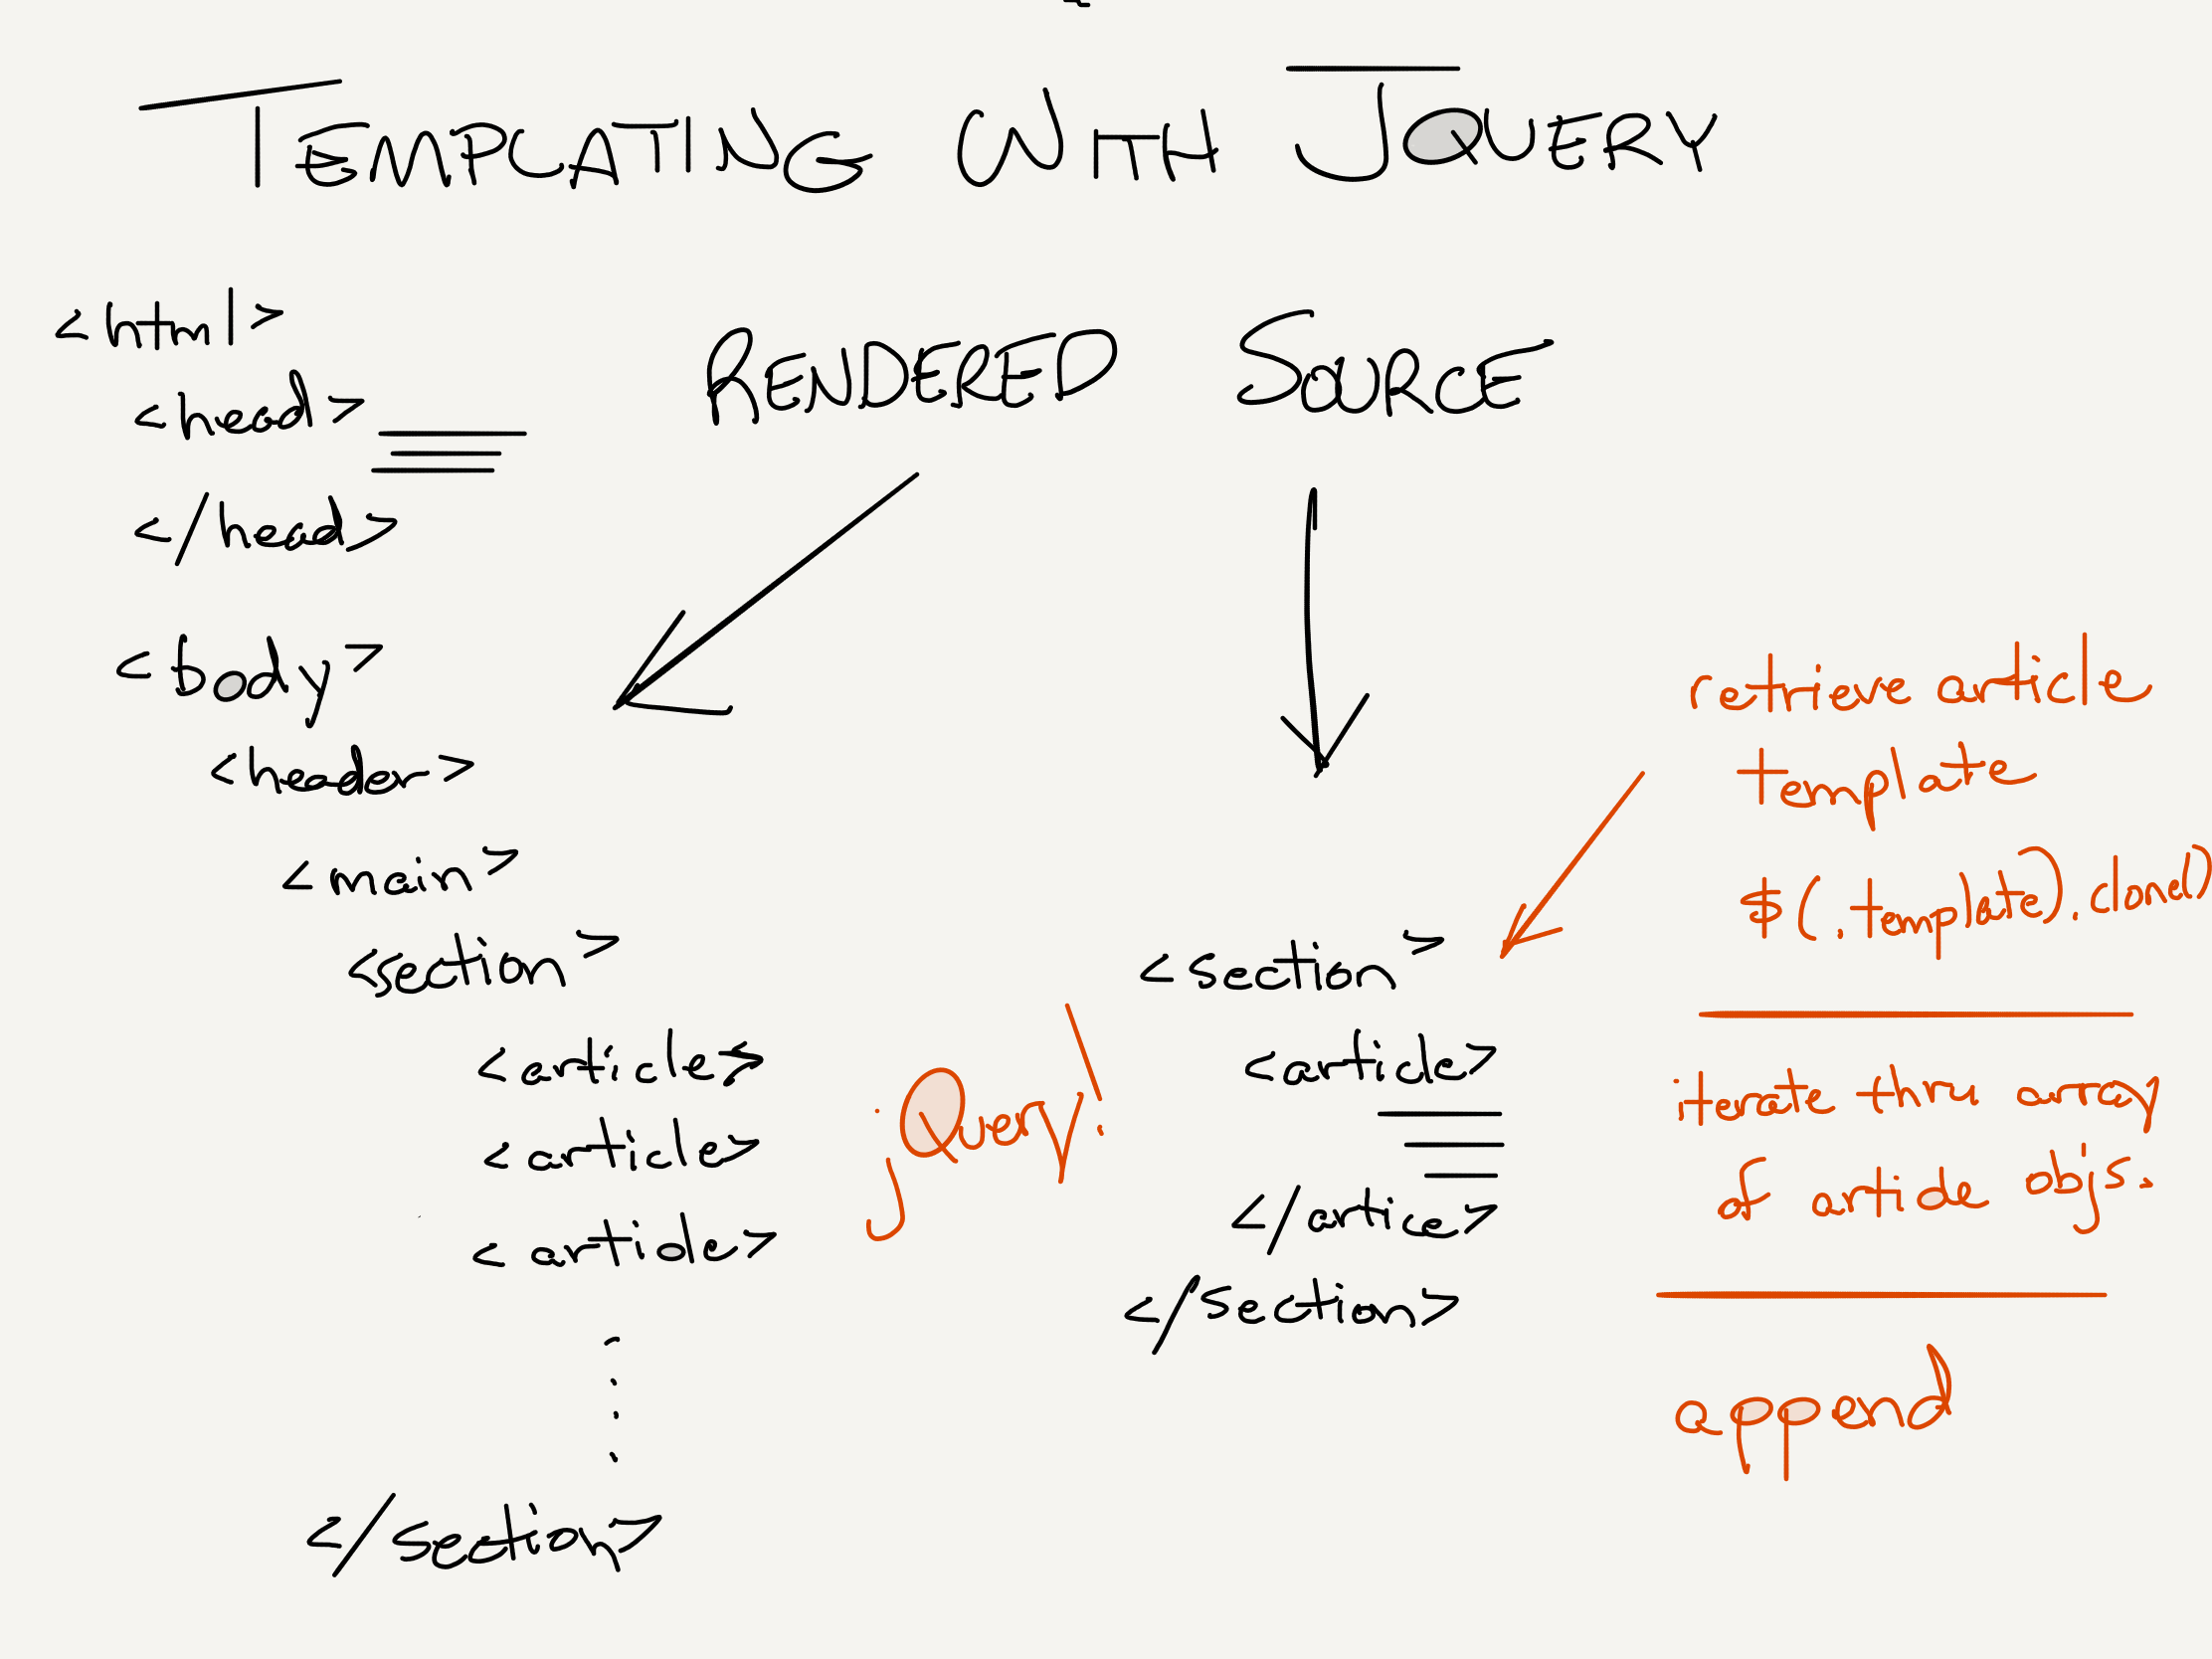 TEMPLATING WITH JQUERY
RENDERED SOURCE
<html>
<head>
</head>
<body>
<header>
<main>
<section>
<article>
<article>
<article>
</section>
jQuery!
<section>
<article>
</artice>
</section>
retrieve article
template
$(.template).clone()
iterate thru array
of article obj's.
append